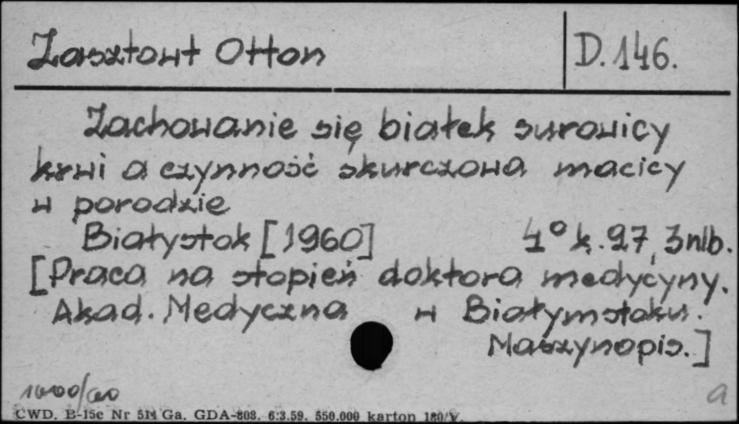 Zasztowt Otton
D.146.
Zachowanie się białek surowicy
krwi a czynność skurczowa macicy
w porodzie
Białystok [1960] 4° k. 97, 3 nlb.
[Praca na stopień doktora medycyny.
Akad. Medyczna w Białymstoku.
Maszynopis.]
a
CWD. B-15c Nr 514 Ga. GDA-808. 6.3.59. 550.000 karton 180/V.